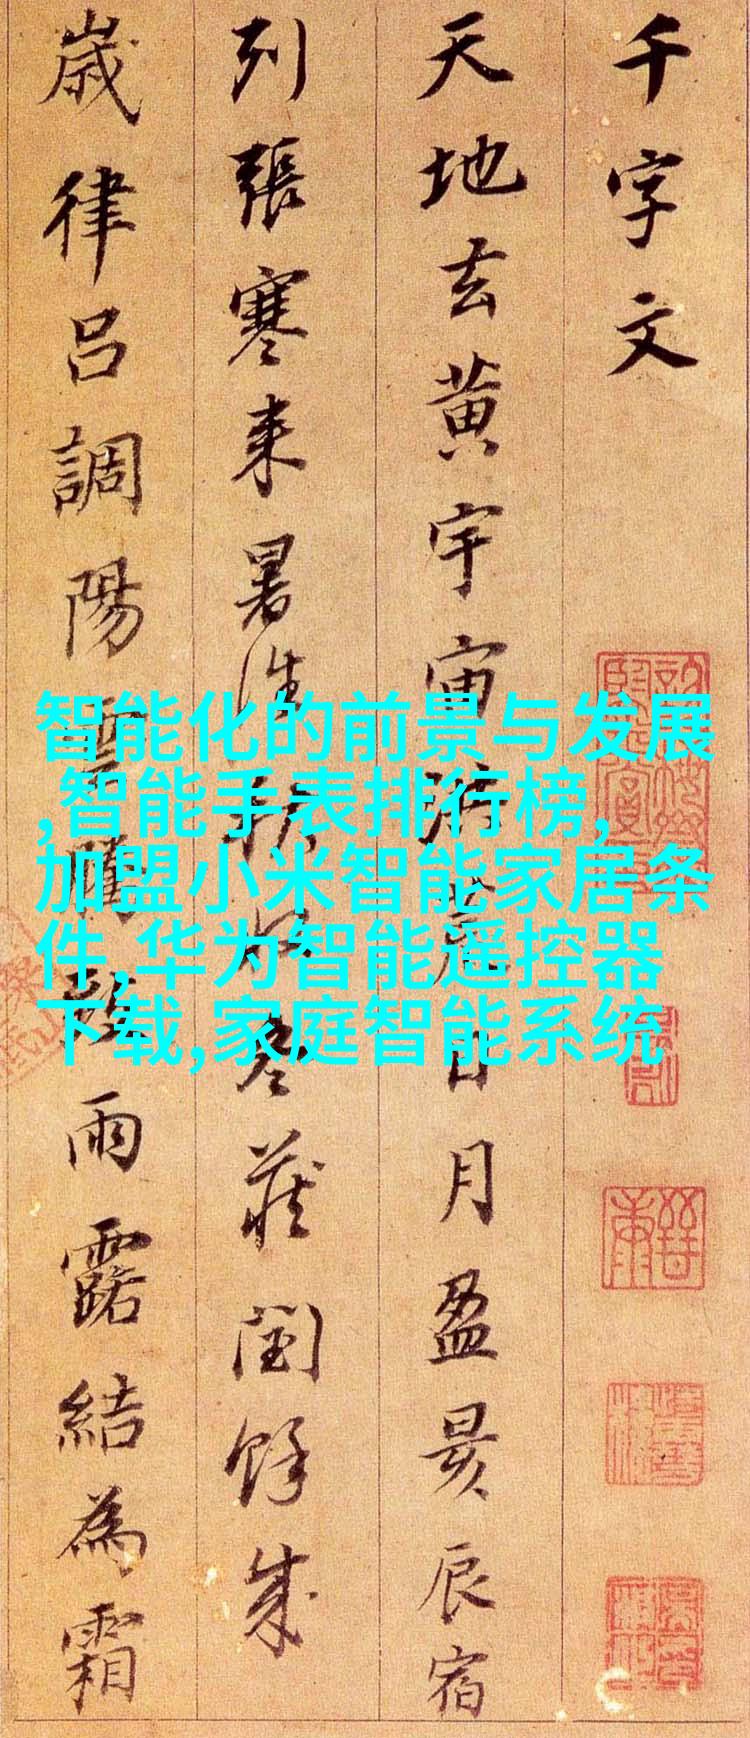 千字文
天地玄黄宇宙洪荒日月盈昃辰宿
列張寒来暑往秋收冬蔵閏餘成
歲律吕調陽雲騰致雨露結為霜
智能化的前景与发展
,智能手表排行榜,
加盟小米智能家居条
件,华为智能遥控器
下载,家庭智能系统